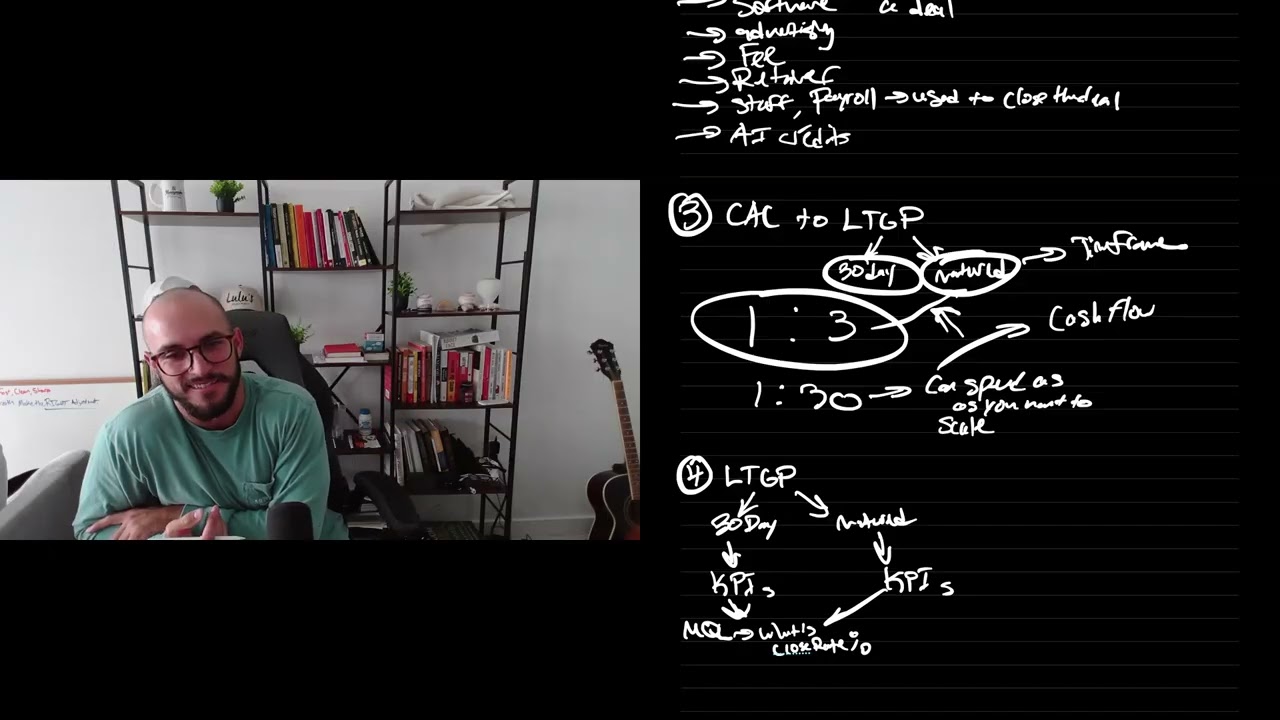 → Software a deal
→ advertising
→ Fee
→ Retainer
→ Staff, Payroll → used to close the deal
→ AI credits
③ CAC to LTGP
30 day matured → Timeframe
1 : 3
Cash flow
1 : 30 → Can spend as
as you want to
scale
④ LTGP
30 Day matured
KPIs KPIs
MQL → what is
close Rate %
Lulu's